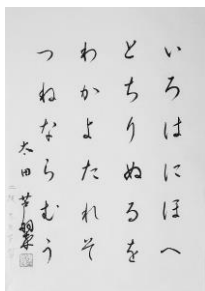 いろはにほへ
とちりぬるを
わかよたれそ
つねならむう
太田